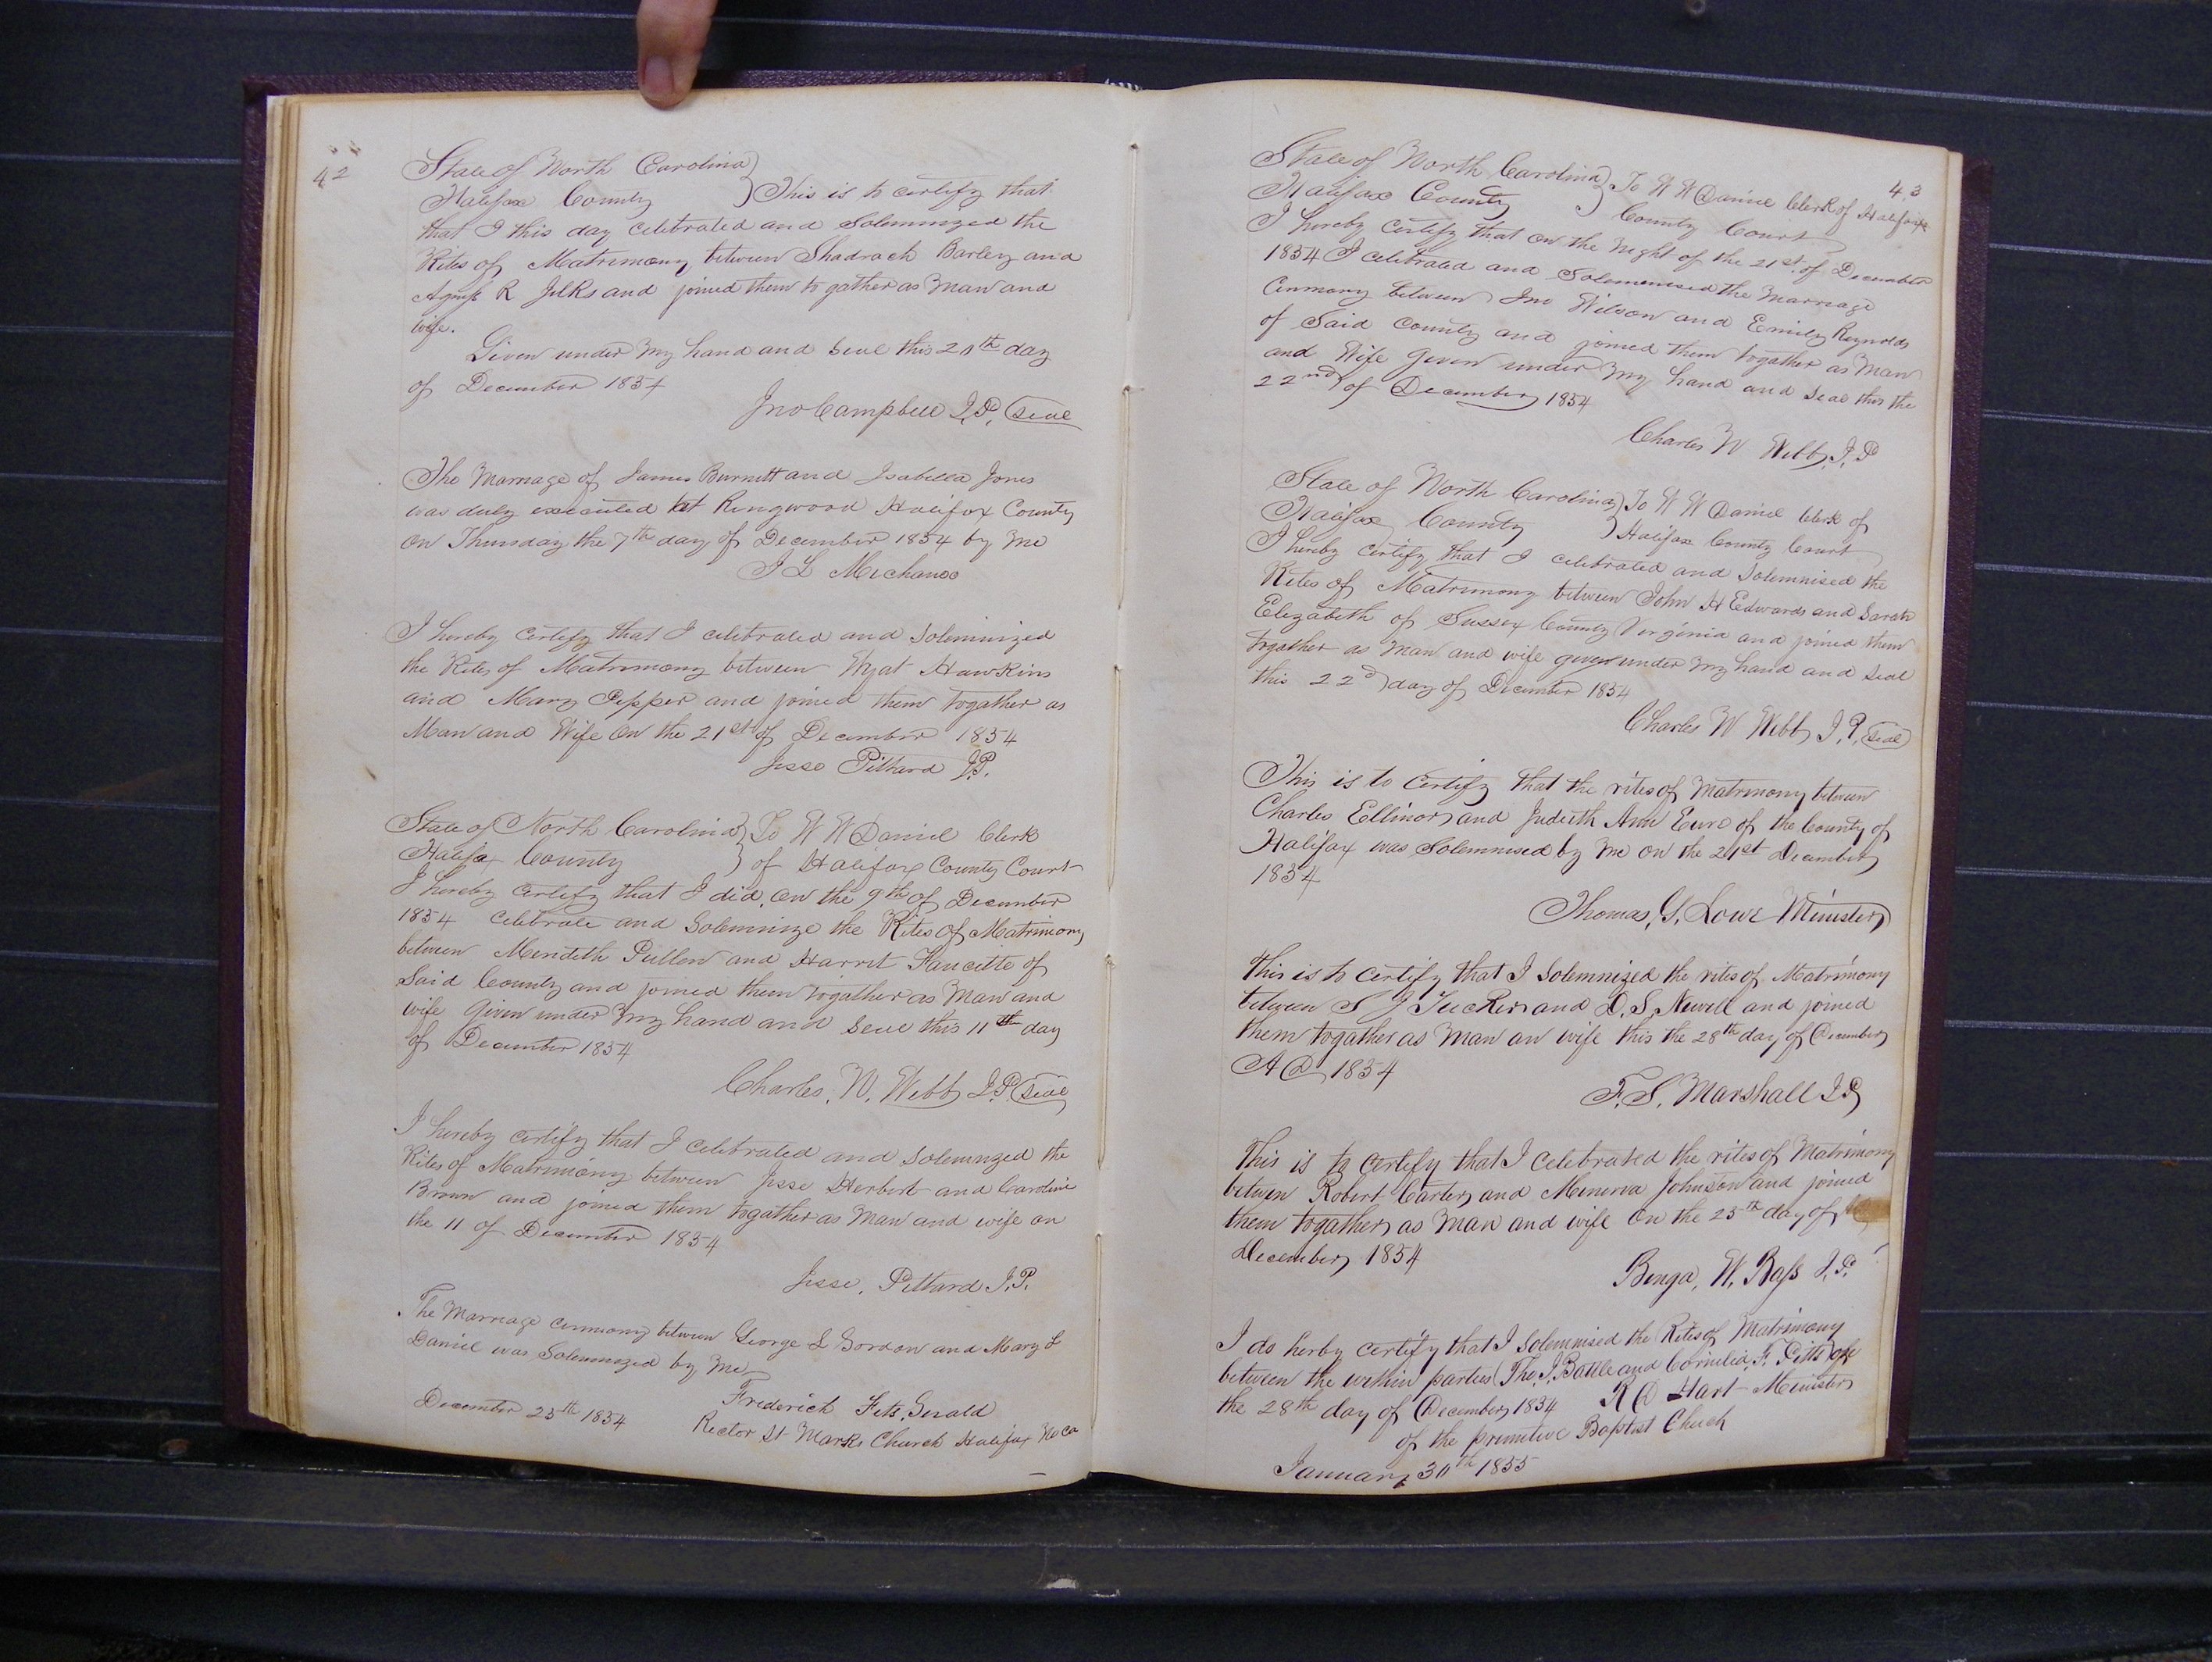 42
State of North Carolina
Halifax County } This is to certify that
that I this day celebrated and Solemnized the
Rites of Matrimony between Shadrach Barley and
Agness R Jilks and joined them to gather as Man and
Wife.
Given under my hand and Seal this 20th day
of December 1854
Jno Campbell J.P. Seal
The Marriage of James Burnett and Isabella Jones
was duly executed at Ringwood Halifax County
on Thursday the 7th day of December 1854 by me
J L Michaux
I hereby certify that I celebrated and Soleminized
the Rites of Matrimony between Wyat Hawkins
and Mary Pepper and joined them togather as
Man and Wife On the 21st of December 1854
Jesse Pittard J.P.
State of North Carolina } To W W Daniel Clerk
Halifax County } of Halifax County Court
I hereby certify that I did, on the 9th of December
1854 celebrate and Solemnize the Rites of Matrimony
between Merideth Pullen and Harret Faucette of
Said County and joined them togather as Man and
wife Given under my hand and Seal this 11th day
of December 1854
Charles. W. Webb J.P. Seal
I hereby certify that I celebrated and Solemnized the
Rites of Matrimony between Jesse Herbert and Caroline
Brown and joined them togather as Man and wife on
the 11 of December 1854
Jesse. Pittard J.P.
The Marriage ceremony between George L Gordon and Mary L
Daniel was Solemnized by me
Frederick Fits, Gerald
December 25th 1854 Rector St Marks Church Halifax No Ca
43
State of North Carolina } To W W Daniel Clerk of Halifax
Halifax County } County Court
I hereby certify that on the Night of the 21st of December
1854 I celebrated and Solemenised the Marriage
Cermony between Jno Wilson and Emily Reynolds
of Said County and joined them togather as Man
and Wife Given under my hand and Seal this the
22nd of December 1854
Charles W Webb, J.P
State of North Carolina } To W W Daniel Clerk of
Halifax County } Halifax County Court
I hereby certify that I celebrated and Solemnised the
Rites of Matrimony between John H Edwards and Sarah
Elizabeth of Sussex County Virginia and joined them
togather as Man and wife given under my hand and Seal
this 22d day of December 1854
Charles W Webb J.P. Seal
This is to Certify that the rites of Matrimony between
Charles Ellinor and Judieth Ann Eure of the County of
Halifax was Solemnised by me on the 21st December
1854
Thomas, G, Lowe Minister
This is to certify that I Solemnized the rites of Matrimony
between S J Tucker and D. S. Newell and joined
them togather as Man an wife this the 28th day of December
A D 1854
F. S. Marshall J.P
This is to Certify that I Celebrated the rites of Matrimony
betwen Robert Carter and Menerva Johnson and joined
them togather as Man and wife On the 25th day of
December 1854
Benja, W. Bass J.P.
I do herby certify that I Solemnised the Rites of Matrimony
between the within parties (Tho. J. Battle and Cornelia, F. Pitts) on
the 28th day of December 1854 R D Hart Minister
of the primetive Baptist Chuch
January 30th 1855